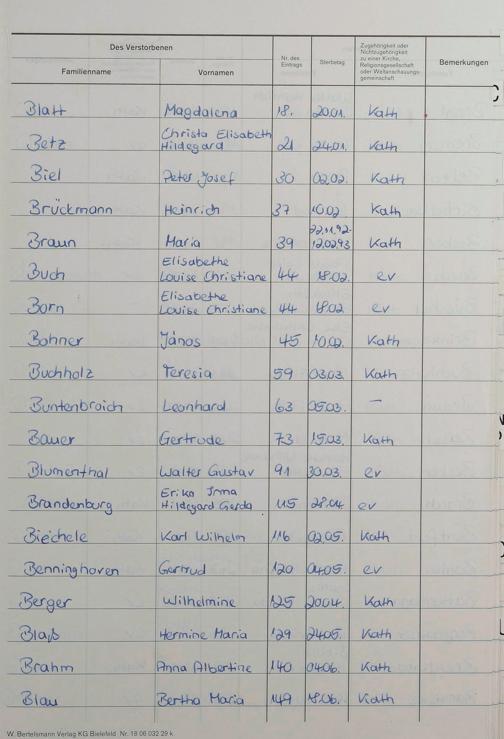 Des Verstorbenen
Familienname Vornamen Nr. des Eintrags Sterbetag Zugehörigkeit oder Nichtzugehörigkeit zu einer Kirche, Religionsgesellschaft oder Weltanschauungsgemeinschaft Bemerkungen
Blatt Magdalena 18. 20.01. Kath
Betz Christa Elisabeth Hildegard 21 24.01. Kath
Biel Peter Josef 30 02.02. Kath
Brückmann Heinrich 37 10.02 Kath
Braun Maria 39 22.11.92- 12.02.93 Kath
Buch Elisabethe Louise Christiane 44 18.02. ev
Born Elisabethe Louise Christiane 44 18.02 ev
Bohner János 45 10.02. Kath
Buchholz Teresia 59 03.03. Kath
Buntenbroich Leonhard 63 05.03. —
Bauer Gertrude 73 15.03. Kath
Blumenthal Walter Gustav 91 30.03. ev
Brandenburg Erika Irma Hildegard Gerda 115 28.04 ev
Biechele Karl Wilhelm 116 02.05. Kath
Benninghoven Gertrud 120 04.05. ev
Berger Wilhelmine 125 20.04. Kath
Blaß Hermine Maria 129 24.05. Kath
Brahm Anna Albertine 140 04.06. Kath
Blau Bertha Maria 149 18.06. Kath
W. Bertelsmann Verlag KG Bielefeld Nr. 18 06 032 29 k